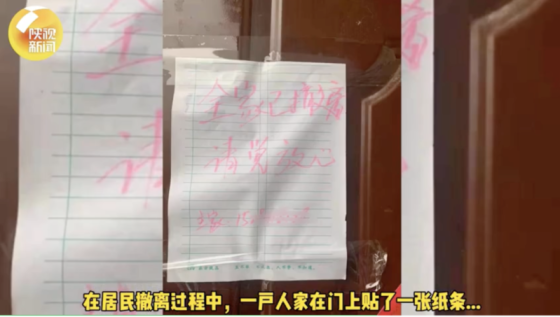 陕视
新闻
全家已撤离
请党放心
在居民撤离过程中，一户人家在门上贴了一张纸条...